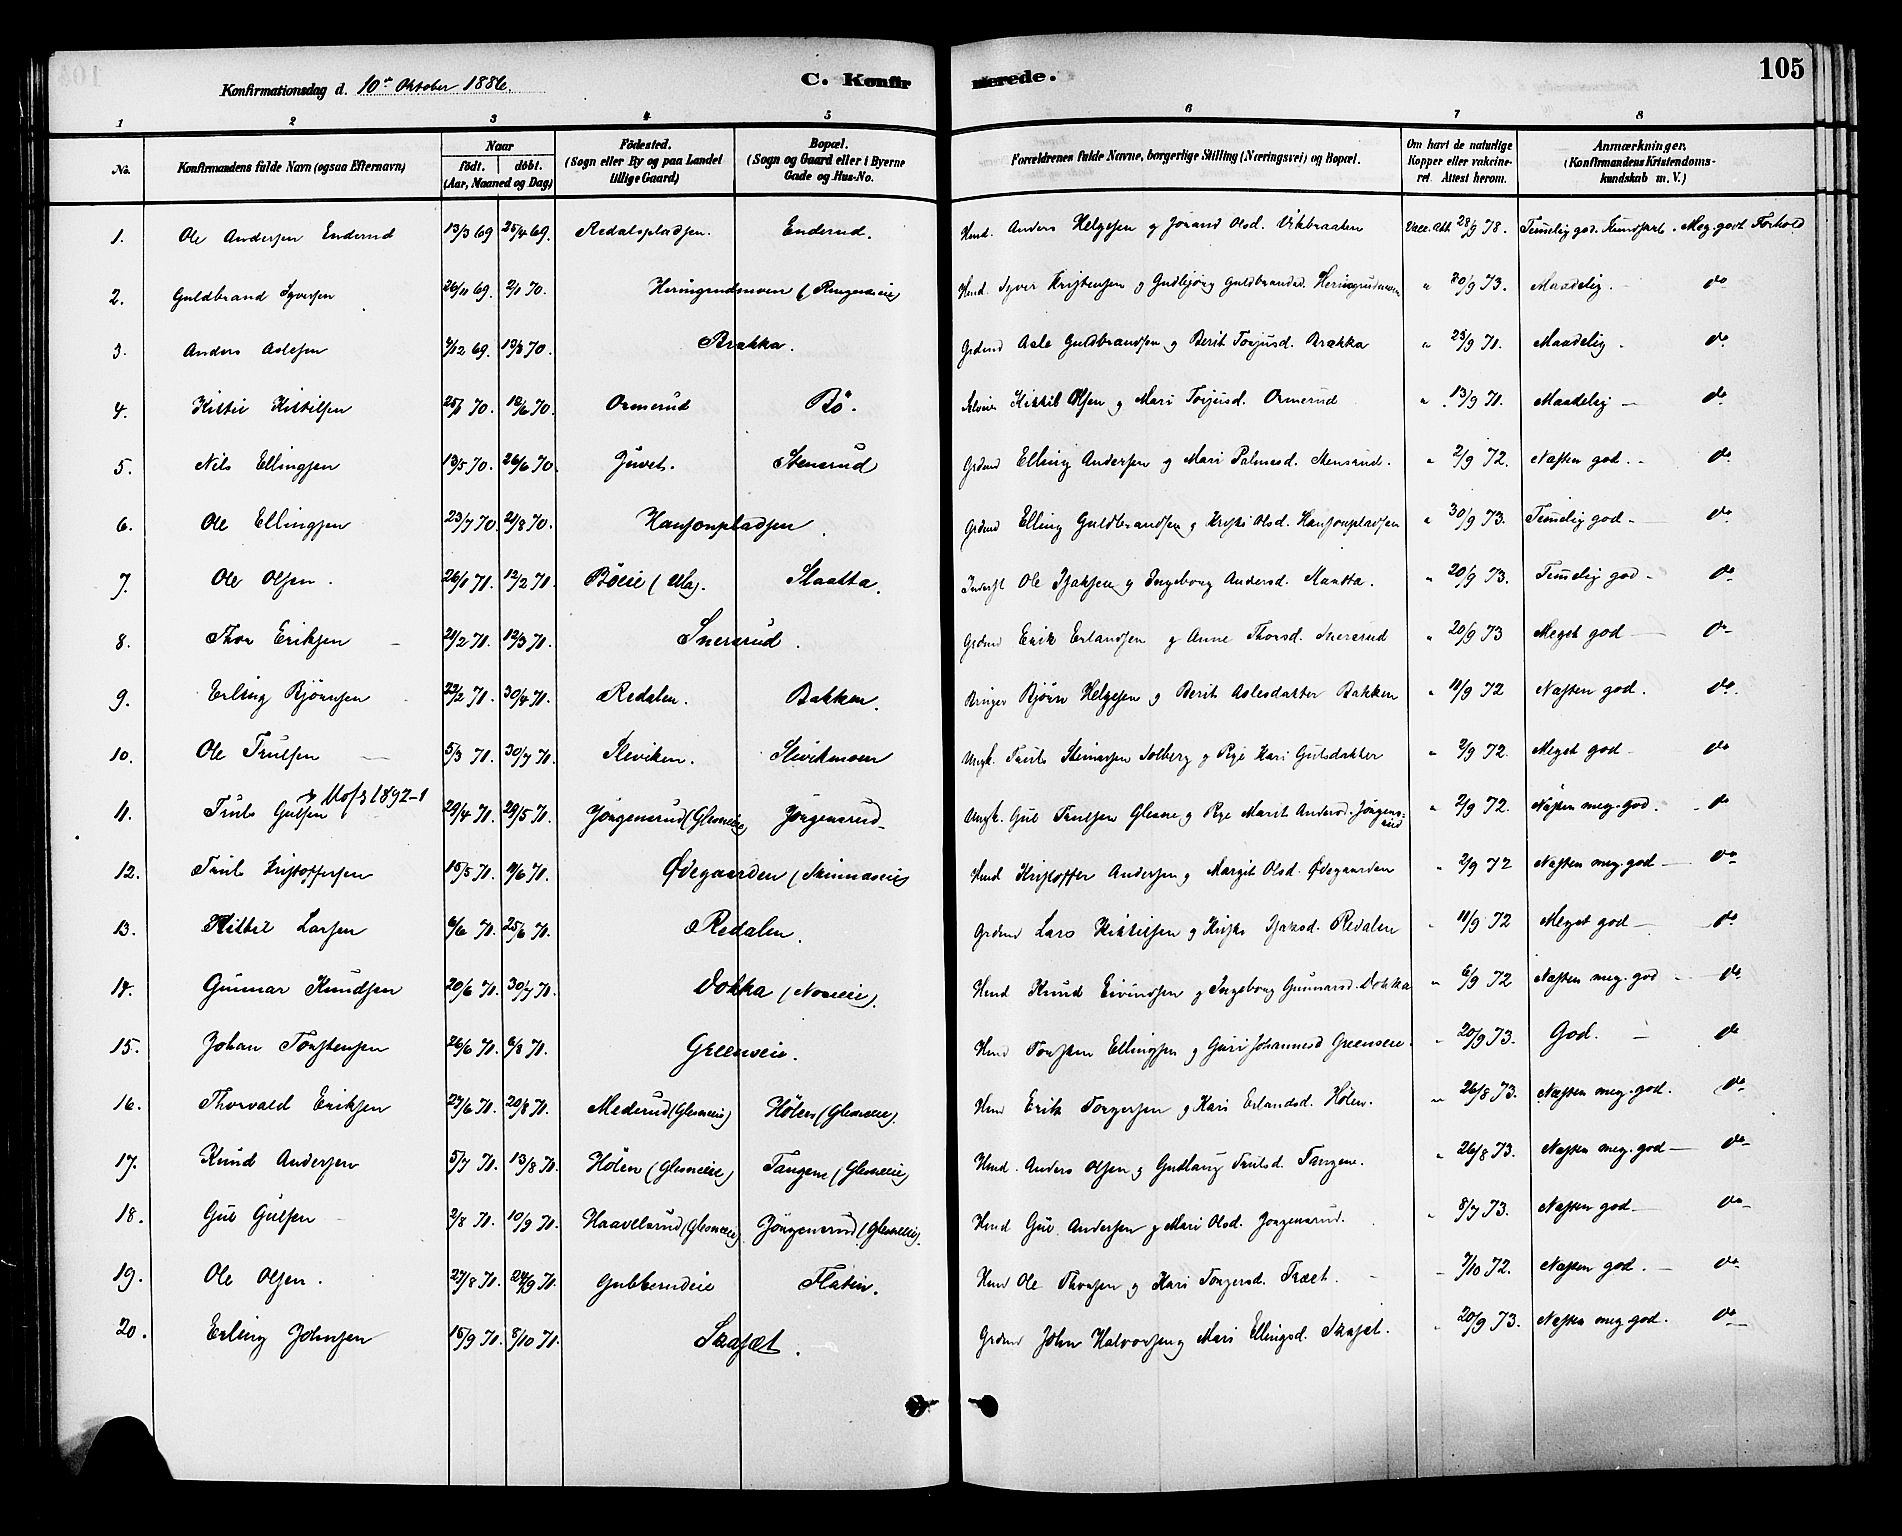 Konfirmationsdag d. 10de Oktober 1886. C. Konfirmerede. 105
1 2 3 4 5 6 7 8
No. Konfirmandens fulde Navn (ogsaa Efternavn) Naar født. døbt. (Aar, Maaned og Dag) Fødested. (Sogn eller By og paa Landet tillige Gaard) Bopæl. (Sogn og Gaard eller i Byerne Gade og Hus-No. Forældrenes fulde Navne, borgerlige Stilling (Næringsvei) og Bopæl. Om havt de naturlige Kopper eller vakcineret. Attest herom. Anmærkninger. (Konfirmandens Kristendomskundskab m. V.)
1. Ole Andersen Enderud 13/3 69 25/4 69. Redalspladsen. Enderud. Hmd. Anders Helgesen og Jørand Olsd. Vikbraaten Vacc. Att. 28/9 78. Temmelig god. Kundskab. Meg. godt Forhold
2. Guldbrand Syversen 26/11 69. 2/1 70. Heringrudmoen (Ringeneie) Hmd. Syver Kristensen og Gudbjørg Guldbrandsd. Heringrudmoen " 20/9 73. Maadelig. do
3. Anders Aslesen /12 69. 13/3 70. Brakka. Grdmd Asle Guldbrandsen og Berit Torjusd. Brakka " 23/9 70. Maadelig. do
4. Kittil Kittilsen 25/1 70. 12/6 70. Ormerud Bö. Kittil Olsen og Mari Torjusd. Ormerud " 13/9 71. Maadelig - do
5. Nils Ellingsen 13/5 70. 26/6 70. Juvet. Stensrud Grdmd Elling Andersen og Mari Palmesd. Stensrud. " 2/9 72. Næsten god. - do
6. Ole Ellingsen 23/7 70. 21/8 70. Hansonpladsen. Grdmd Elling Guldbrandsen og Kristi Olsd. Hansonpladsen " 30/9 73. Temmelig god - do
7. Ole Olsen. 26/1 70. 12/2 70. Böeie (Aal). Slaatta. Inderst Ole Isaksen og Ingeborg Andersd. Slaatta. " 20/9 73. Temmelig god - do
8. Thor Eriksen 21/2 70. 12/3 70. Snersrud. Grdmd Erik Erlandsen og Anne Thorsd. Snersrud " 20/9 73 Meget god - do
9. Erling Bjørnsen 22/2 70. 30/4 70. Redalen. Bakken. Bruger Bjørn Helgesen og Berit Aslesdatter Bakken " 11/9 72 Næsten god. do.
10. Ole Trulsen 5/3 70. 30/7 70. Sleviken. Slevikmoen Ungk. Truls Steinarsen Solberg og Pige Kari Gulsdatter " 2/9 72. Meget god - do
11. Truls Gulsen 1892-1 29/4 70. 29/5 70. Jørgensrud (Glesneeie) Jørgensrud- Ungk. Gul Trulsen Glesne og Pige Marit Andersd. Jørgensrud " 2/9 72. Næsten meg. god. - do
12. Truls Kristoffersen 15/5 70. /6 70. Ødegaarden (Skinnaseie) Hmd Kristoffer Andersen og Margit Olsd. Ødegaarden " 2/9 72 Næsten meg. god - do
13. Kittil Larsen 6/6 70. 25/6 70. Redalen. Grdmd Lars Kittilsen og Kristi Isaksd. Redalen " 11/9 72 Meget god - do
14. Gunnar Knudsen 20/6 70. 30/7 70. Dokka (Noreeie). Hmd Knud Eivindsen og Ingeborg Gunnarsd. Dokka " 6/9 72 Næsten meg. god - do
15. Johan Torstensen 26/6 70. 6/8 70. Greeneeie. Hmd Torsten Ellingsen og Guri Johannesd Greeneeie. " 20/9 73. God. - do
16. Thorvald Eriksen 27/6 70. 20/8 70. Mederud (Glesneeie) Hølen (Glesneeie). Hmd Erik Torgersen og Kari Erlandsd. Hølen. " 26/8 73. Næsten meg. god. do
17. Knud Andersen 5/7 70. 13/8 70. Hølen (Glesneeie) Tangene (Glesneeie) Hmd. Anders Olsen og Gudlaug Trulsd. Tangene. " 26/8 73. Næsten meg. god - do
18. Gul Gulsen 2/8 70. 10/9 70. Haavelsrud (Glesneeie) Jørgensrud (Glesneeie). Hmd Gul Andersen og Mari Olsd. Jørgensrud. " 8/7 73. Næsten god - do
19. Ole Olsen. 27/8 70. 24/9 70. Gubberudeie Flaten. Hmd Ole Thorsen og Kari Torgersd. Træet. - 7/10 72. Næsten god. - do
20. Erling Johnsen 15/9 70. 8/10 70. Skafæt. Grdmd John Halvorsen og Mari Ellingsd. Skafæt. " 20/9 73. Næsten meg. god. do